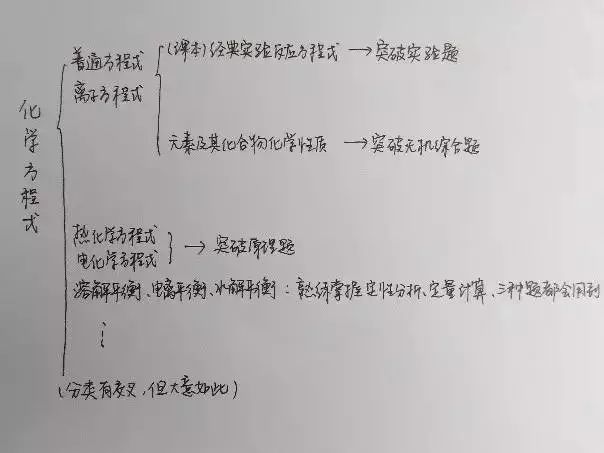 化学方程式
普通方程式
离子方程式
(课本)经典实验反应方程式 → 突破实验题
元素及其化合物化学性质 → 突破无机综合题
热化学方程式
电化学方程式
→ 突破原理题
溶解平衡、电离平衡、水解平衡:熟练掌握定性分析、定量计算、三种题都会用到
⋮
(分类有交叉,但大意如此)